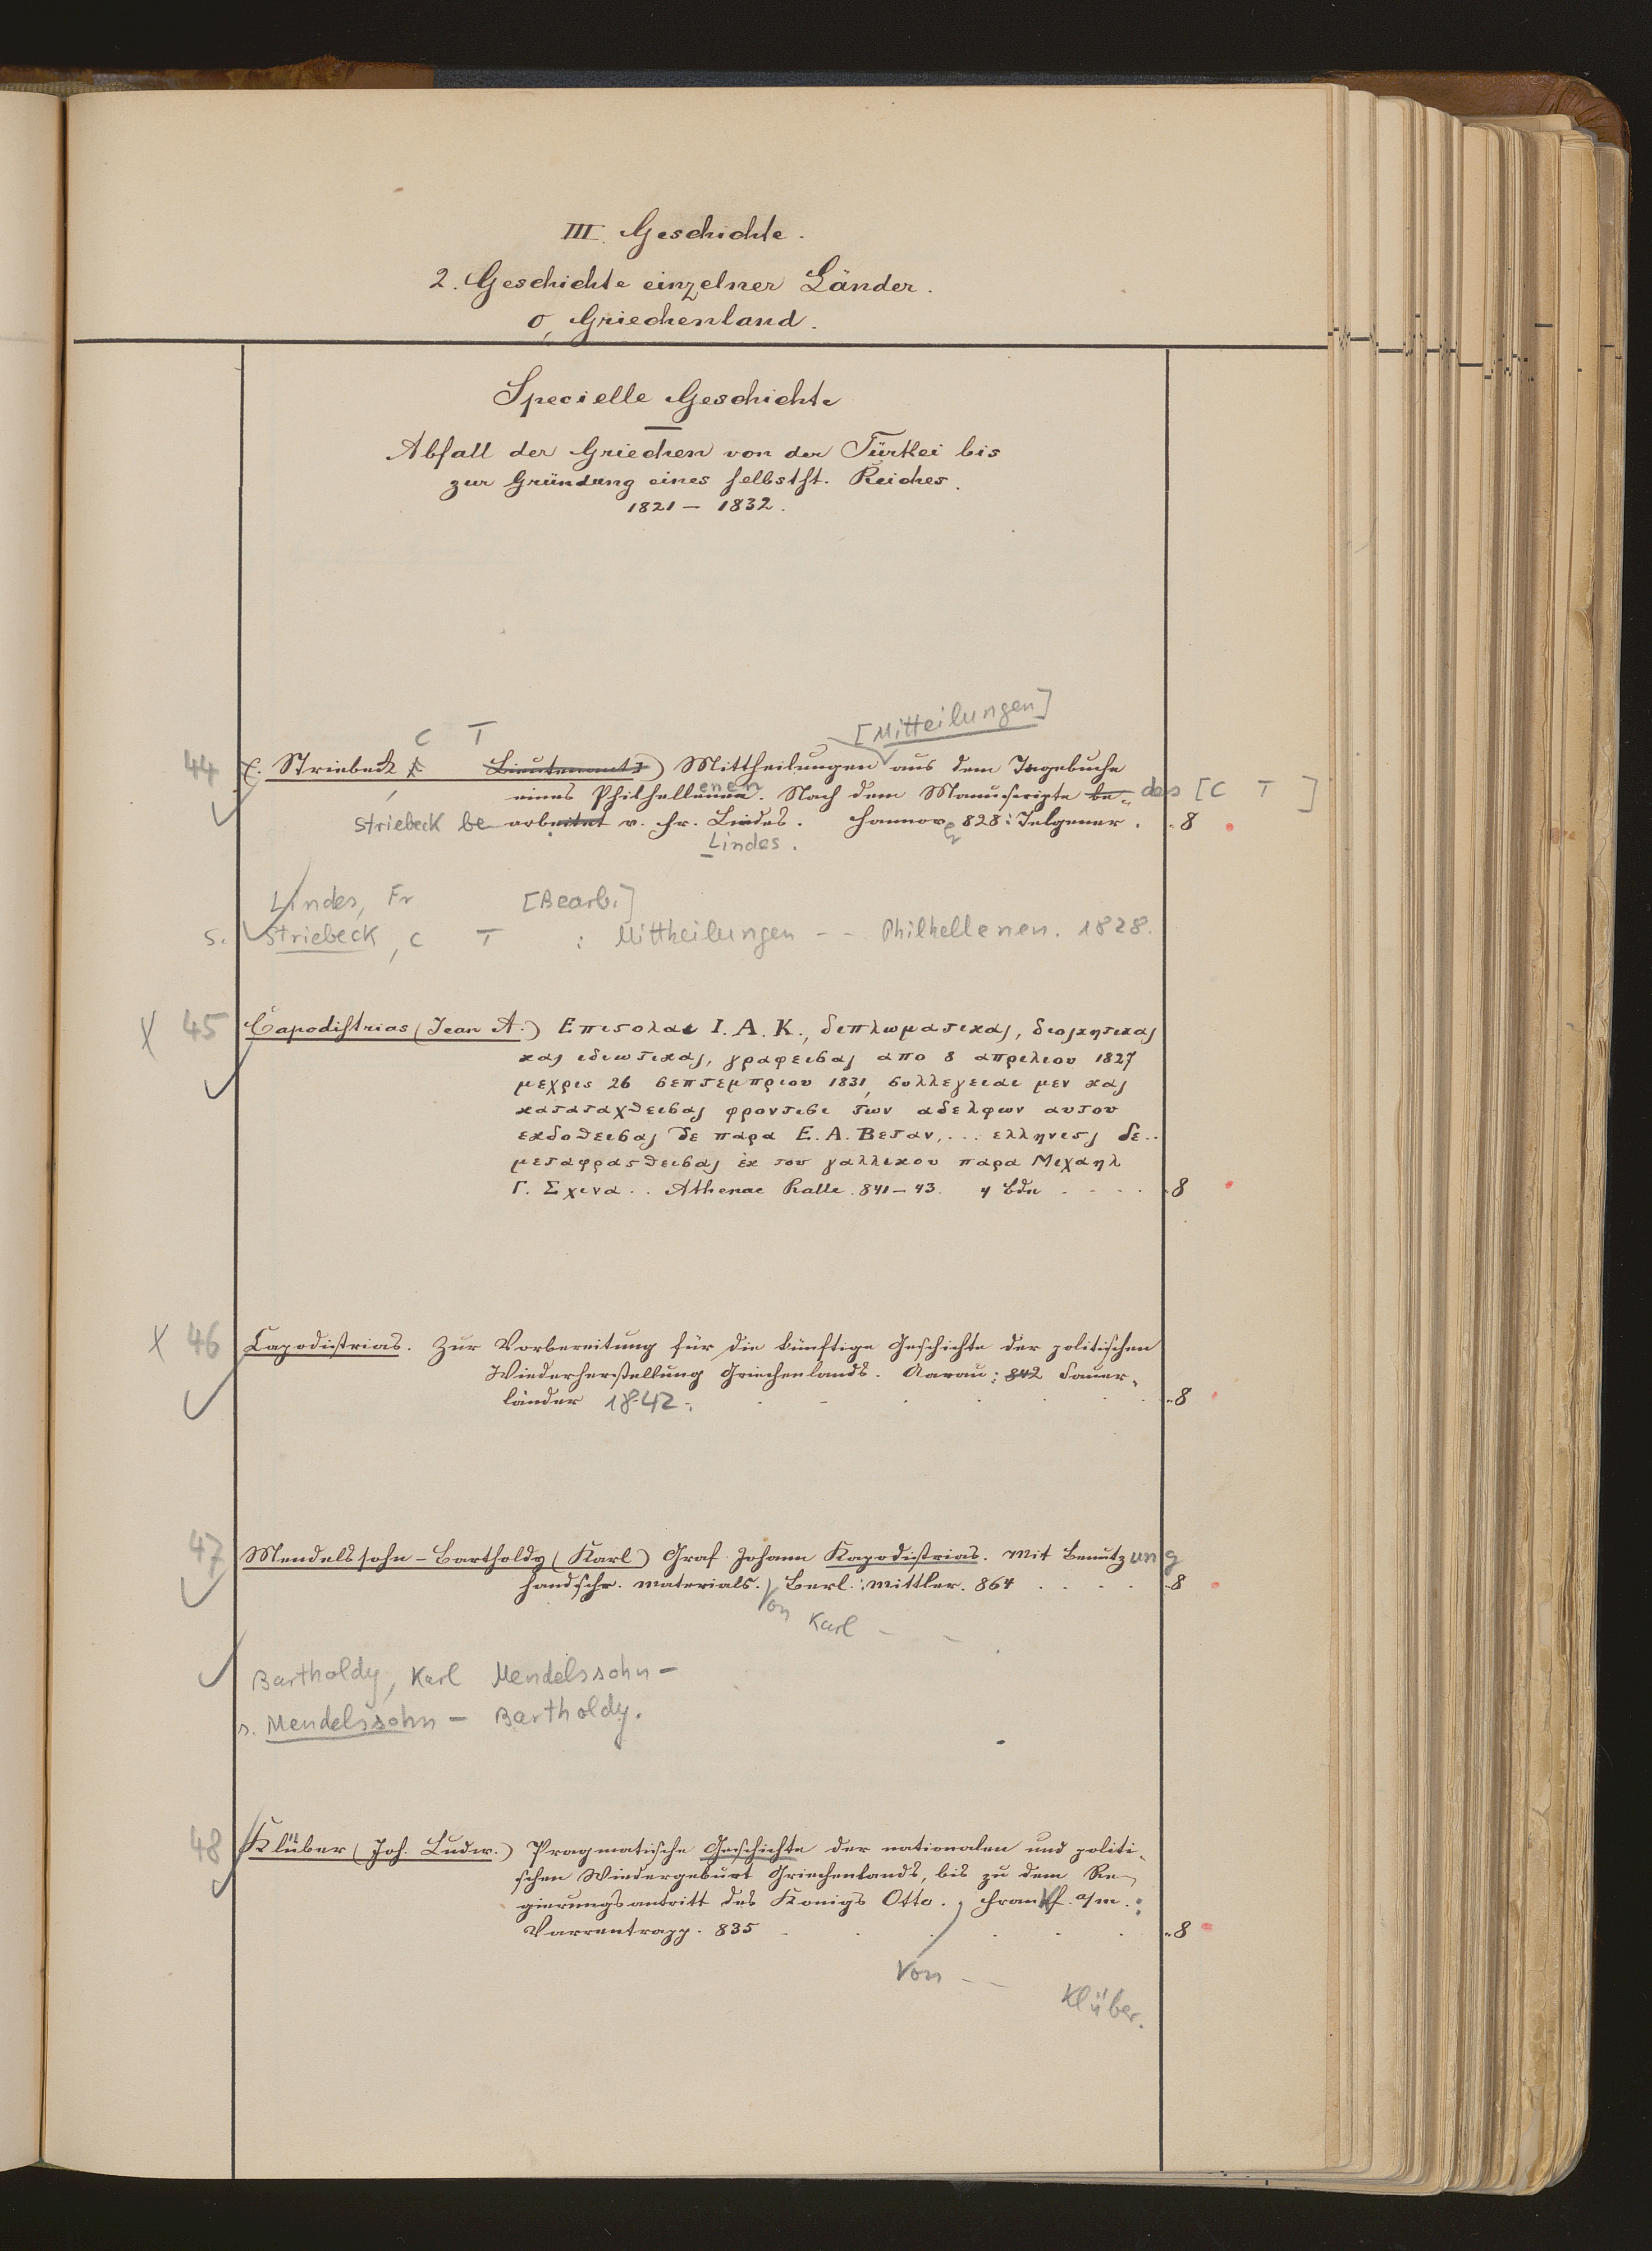 III. Geschichte.
2. Geschichte einzelner Länder.
o, Griechenland.
Specielle Geschichte
Abfall der Griechen von der Türkei bis
zur Gründung eines selbstst. Reiches.
1821 – 1832.
[Mitteilungen]
C T
44 Striebeck Lieutenants) Mittheilungen aus dem Tagebuche
eines Philhellenen. Nach dem Manuscripte be- des [C T ]
Striebeck be arbeitet v. Fr. Lindes. Hannover 828: Telgener. 8
Lindes.
Lindes, Fr [Bearb.]
s. Striebeck, C T : Mittheilungen - - Philhellenen. 1828.
X 45 Capodistrias (Jean A.) Επιστολαι Ι. Α. Κ., διπλωματικαι, διοικητικαι
και ιδιωτικαι, γραφεισαι απο 8 απριλιου 1827
μεχρις 26 σεπτεμπριου 1831, συλλεγεισαι μεν και
καταταχθεισαι φροντισι των αδελφων αυτου
εκδοθεισαι δε παρα Ε. Α. Βεταν, ... ελληνιστι δε..
μεταφρασθεισαι ἐκ του γαλλικου παρα Μιχαηλ
Γ. Σχινα.. Athenae Ralle. 841–43. 4 Bde 8
X 46 Capodistrias. Zur Vorbereitung für die künftige Geschichte der politischen
Wiederherstellung Griechenlands. Aarau: 842 Sauer-
länder 1842. 8
47 Mendelssohn-Bartholdy (Karl) Graf Johann Kapodistrias. Mit Benutzung
handschr. Materials. Berl.: Mittler. 864 8
Von Karl - -
Bartholdy, Karl Mendelssohn-
s. Mendelssohn - Bartholdy.
48 Klüber (Joh. Ludw.) Pragmatische Geschichte der nationalen und politi-
schen Wiedergeburt Griechenlands, bis zu dem Re-
gierungsantritt des Königs Otto. Frankf. a/m.:
Varrentrapp. 835 8
Von - - Klüber.